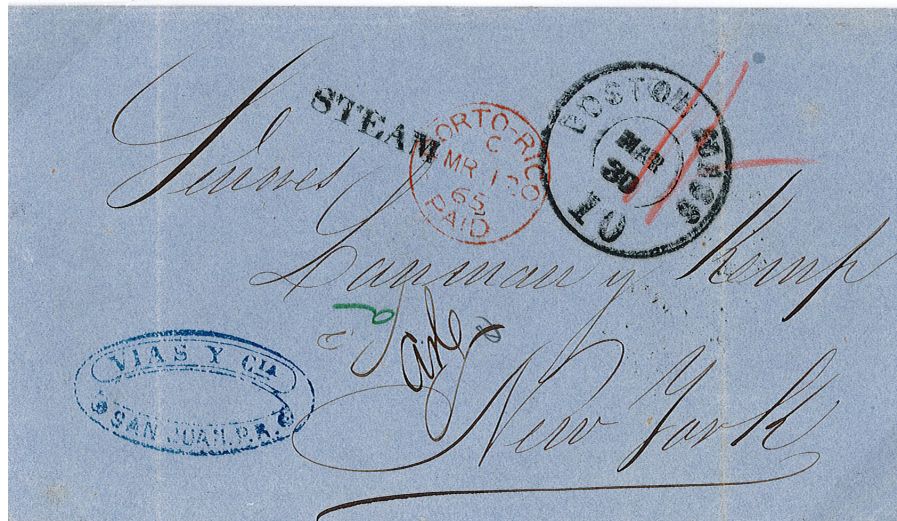 STEAM
PORTO-RICO
C
MR 12
65
PAID
BOSTON MASS
MAR
30
10
Senores
Lanman y Kemp
New York
VIAS Y CIA
SAN JUAN. P.R.